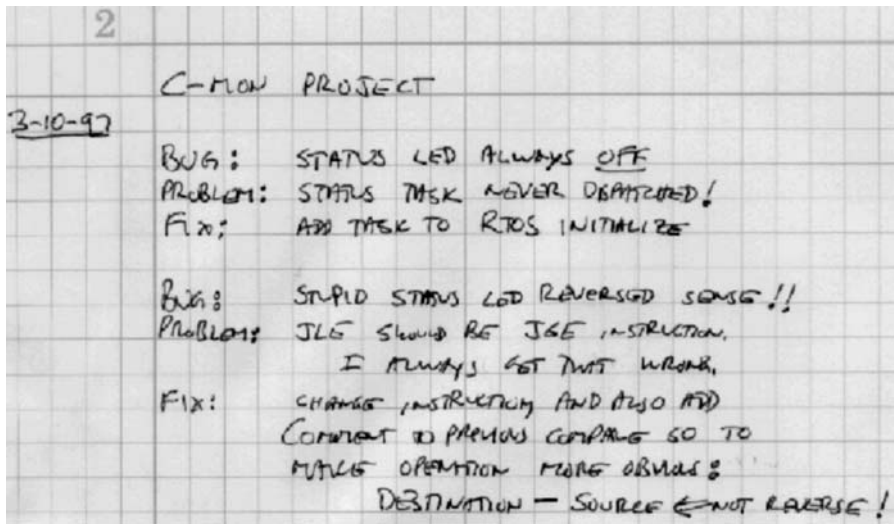 2
C-MON PROJECT
3-10-97
BUG: STATUS LED ALWAYS OFF
PROBLEM: STATUS TASK NEVER DISPATCHED!
FIX: ADD TASK TO RTOS INITIALIZE
BUG: STUPID STATUS LED REVERSED SENSE!!
PROBLEM: JLE SHOULD BE JGE INSTRUCTION.
I ALWAYS GET THAT WRONG.
FIX: CHANGE INSTRUCTION, AND ALSO ADD
COMMENT TO PREVIOUS COMPARE SO TO
MAKE OPERATION MORE OBVIOUS:
DESTINATION - SOURCE ⇐ NOT REVERSE!